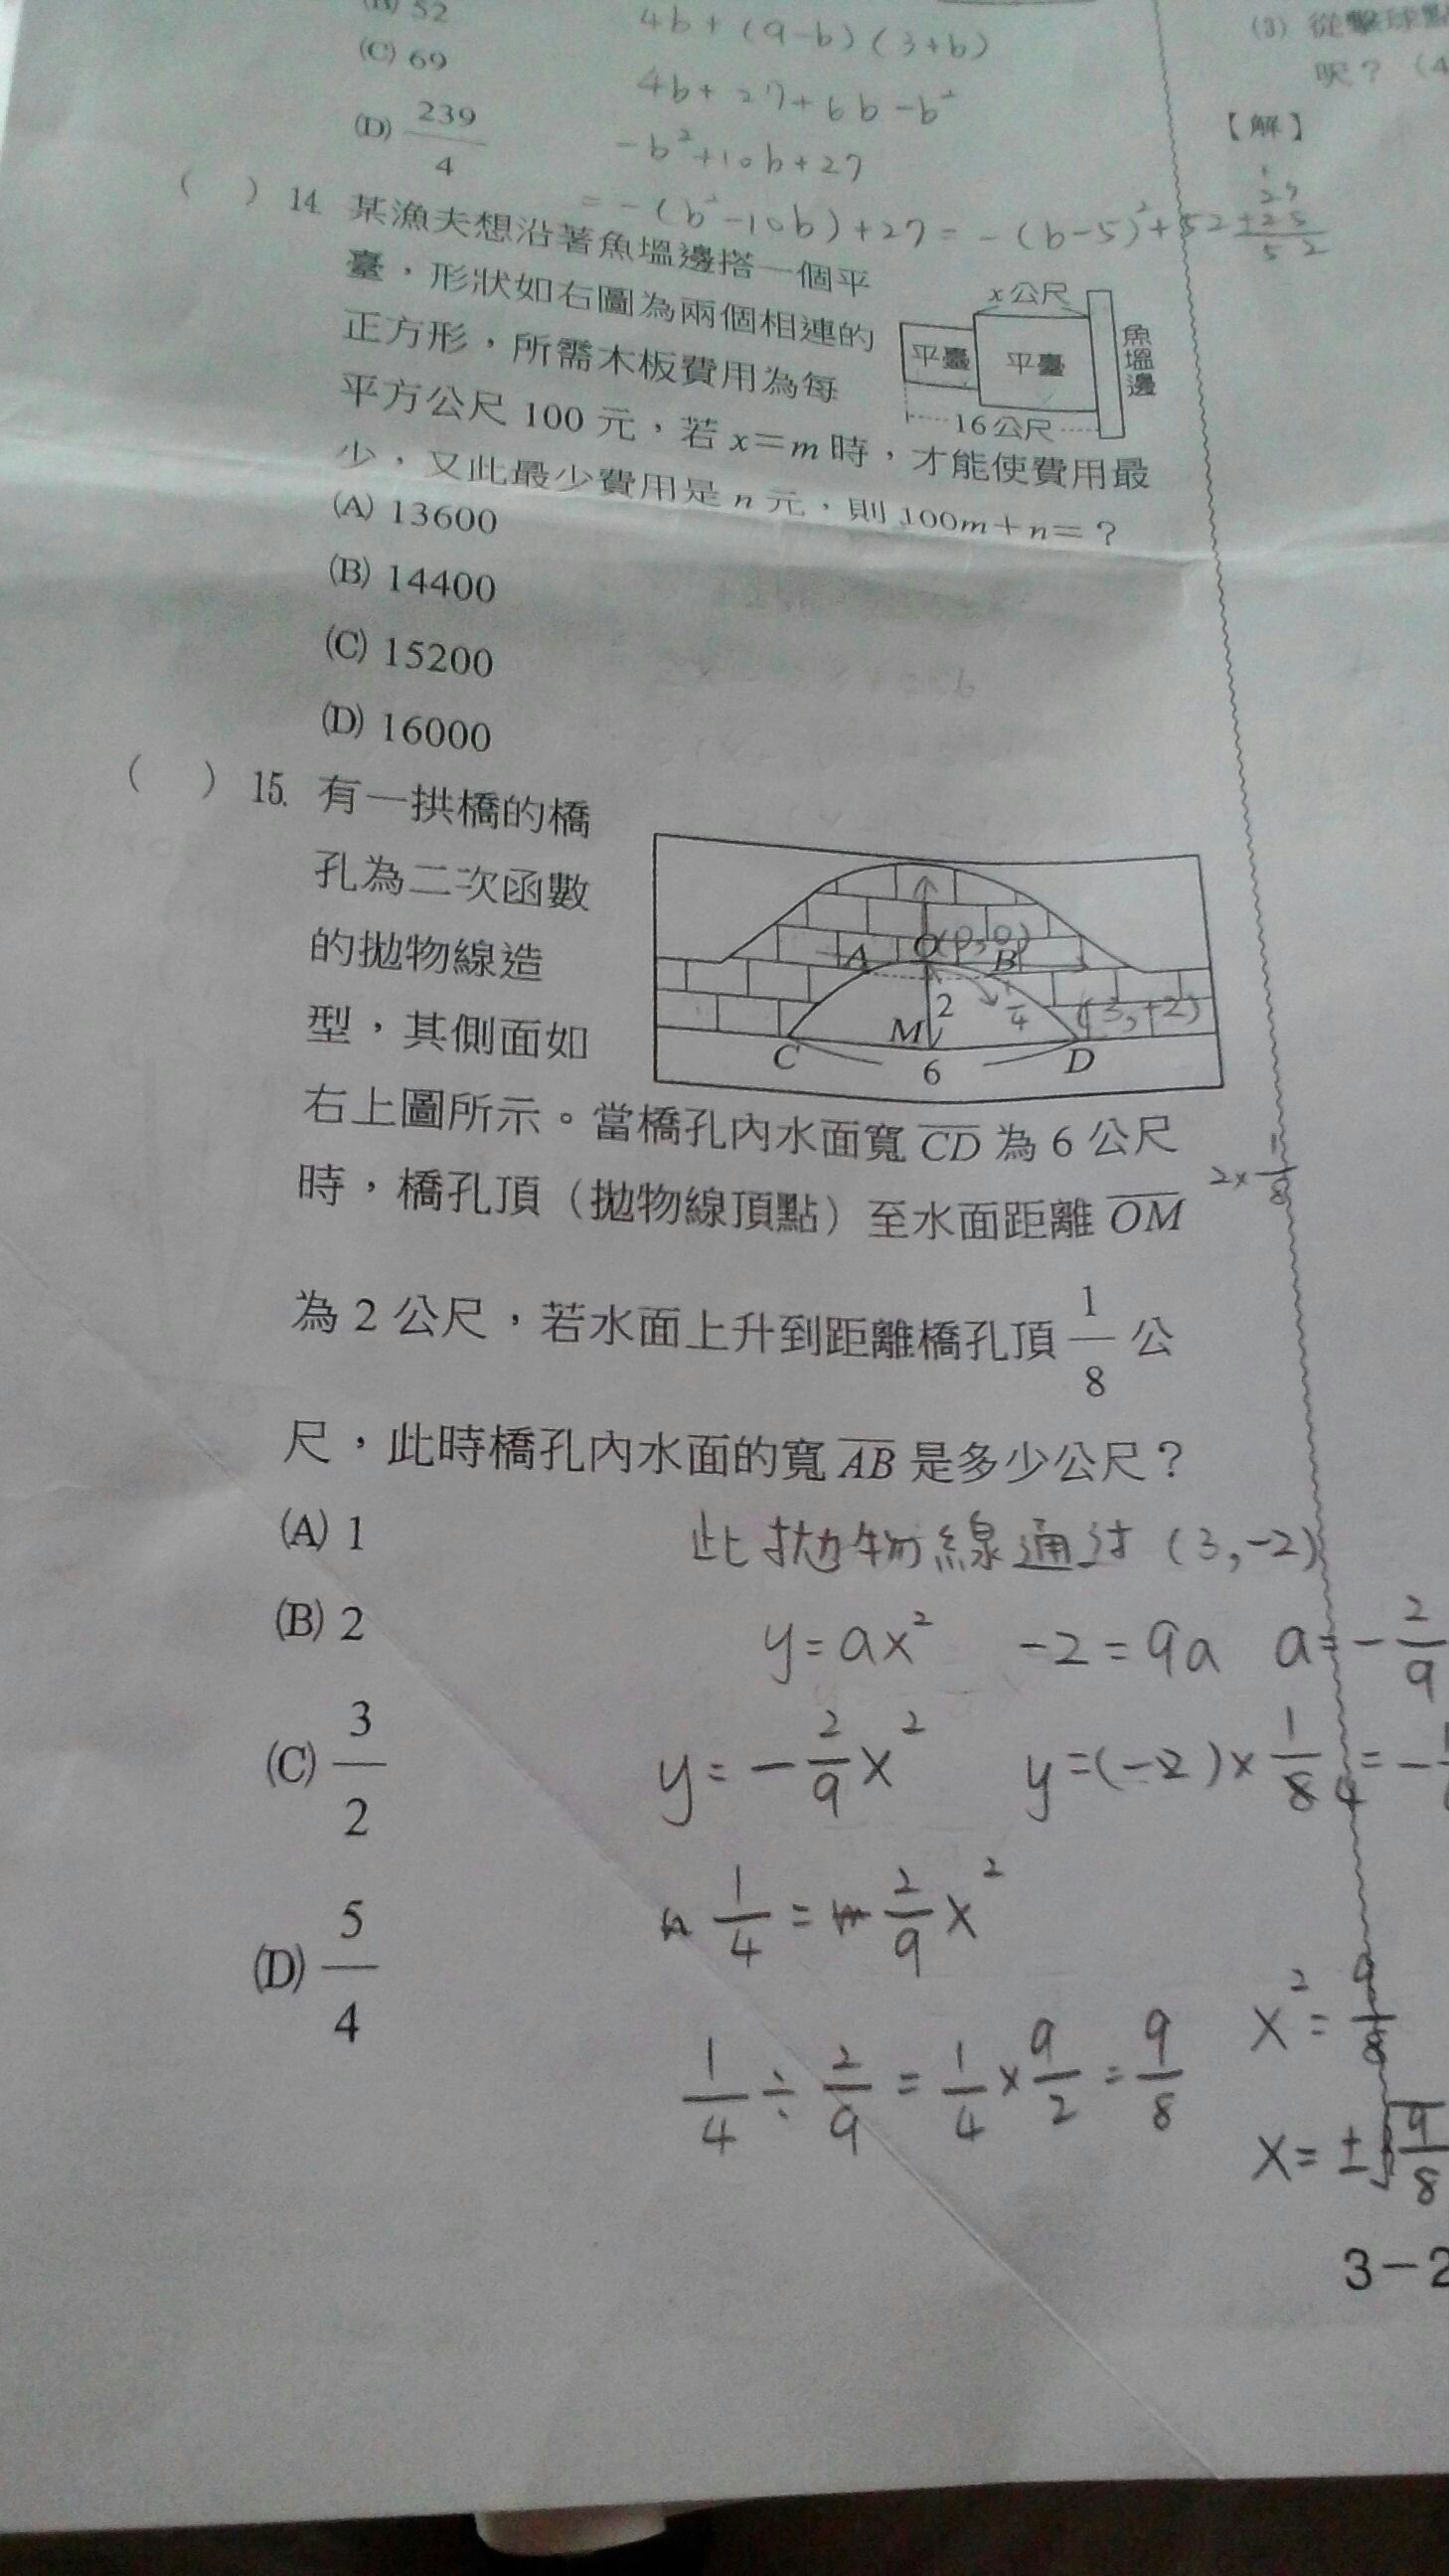 (B) 52
4b+(9-b)(3+b)
(3) 從擊球點
(C) 69
呢？（4
4b+27+6b-b²
(D) 239/4
【解】
-b²+10b+27
=-(b²-10b)+27=-(b-5)²+52
27
+25
52
（　）14. 某漁夫想沿著魚塭邊搭一個平
臺，形狀如右圖為兩個相連的
正方形，所需木板費用為每
平方公尺 100 元，若 x＝m 時，才能使費用最
少，又此最少費用是 n 元，則 100m＋n＝？
x公尺
平臺
平臺
魚塭邊
16公尺
(A) 13600
(B) 14400
(C) 15200
(D) 16000
（　）15. 有一拱橋的橋
孔為二次函數
的拋物線造
型，其側面如
A O(0,0) B
2
1/4
(3,+2)
C M D
6
右上圖所示。當橋孔內水面寬 CD 為 6 公尺
時，橋孔頂（拋物線頂點）至水面距離 OM
2×1/8
為 2 公尺，若水面上升到距離橋孔頂 1/8 公
尺，此時橋孔內水面的寬 AB 是多少公尺？
(A) 1
此拋物線通过 (3,-2)
(B) 2
y=ax² -2=9a a=-2/9
(C) 3/2
y=-2/9x² y=(-2)×1/8 4=-
1/4=2/9x²
(D) 5/4
x²=9/8
1/4÷2/9=1/4×9/2=9/8
x=±√9/8
3－2